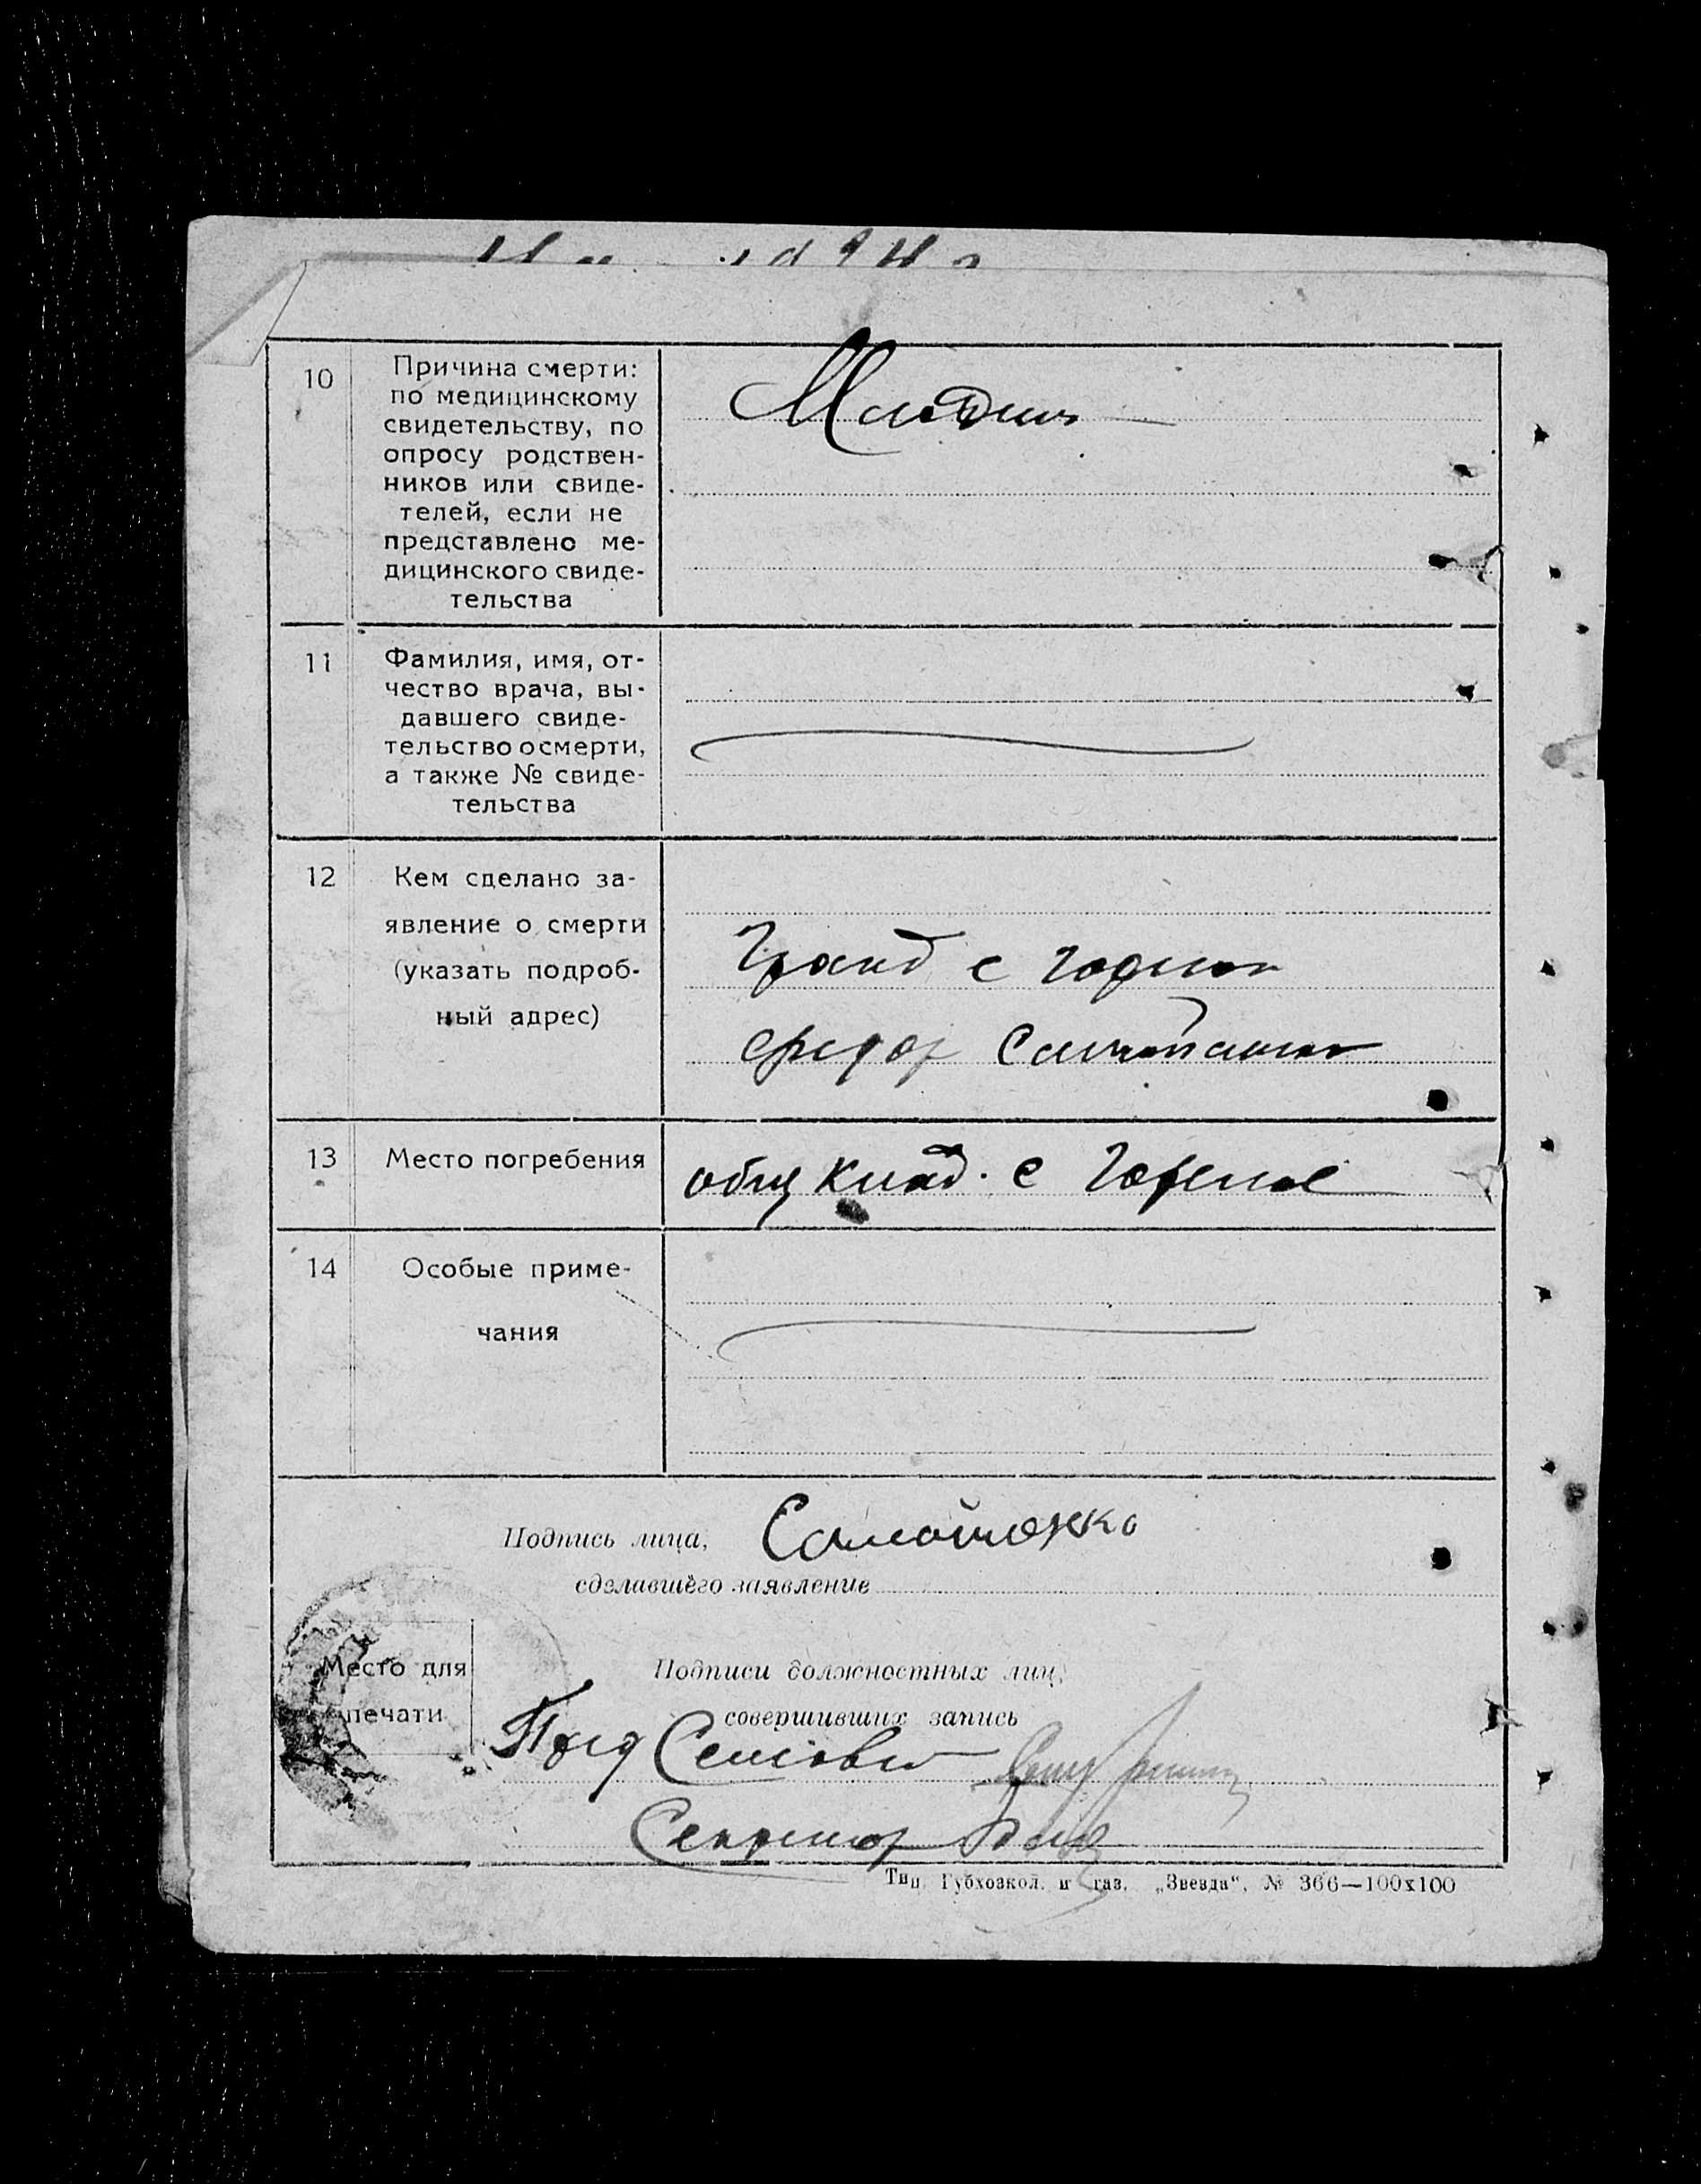 10
Причина смерти:
по медицинскому
свидетельству, по
опросу родствен-
ников или свиде-
телей, если не
представлено ме-
дицинского свиде-
тельства
11
Фамилия, имя, от-
чество врача, вы-
давшего свиде-
тельство о смерти,
а также № свиде-
тельства
12
Кем сделано за-
явление о смерти
(указать подроб-
ный адрес)
Гражд с
13
Место погребения
общ клад. с
14
Особые приме-
чания
Подпись лица,
сделавшего заявление
Место для
печати
Подписи должностных лиц,
совершивших запись
Пред Сельсовета
Секретарь
Тип. Губхозкол. и газ. „Звезда“, № 366—100х100